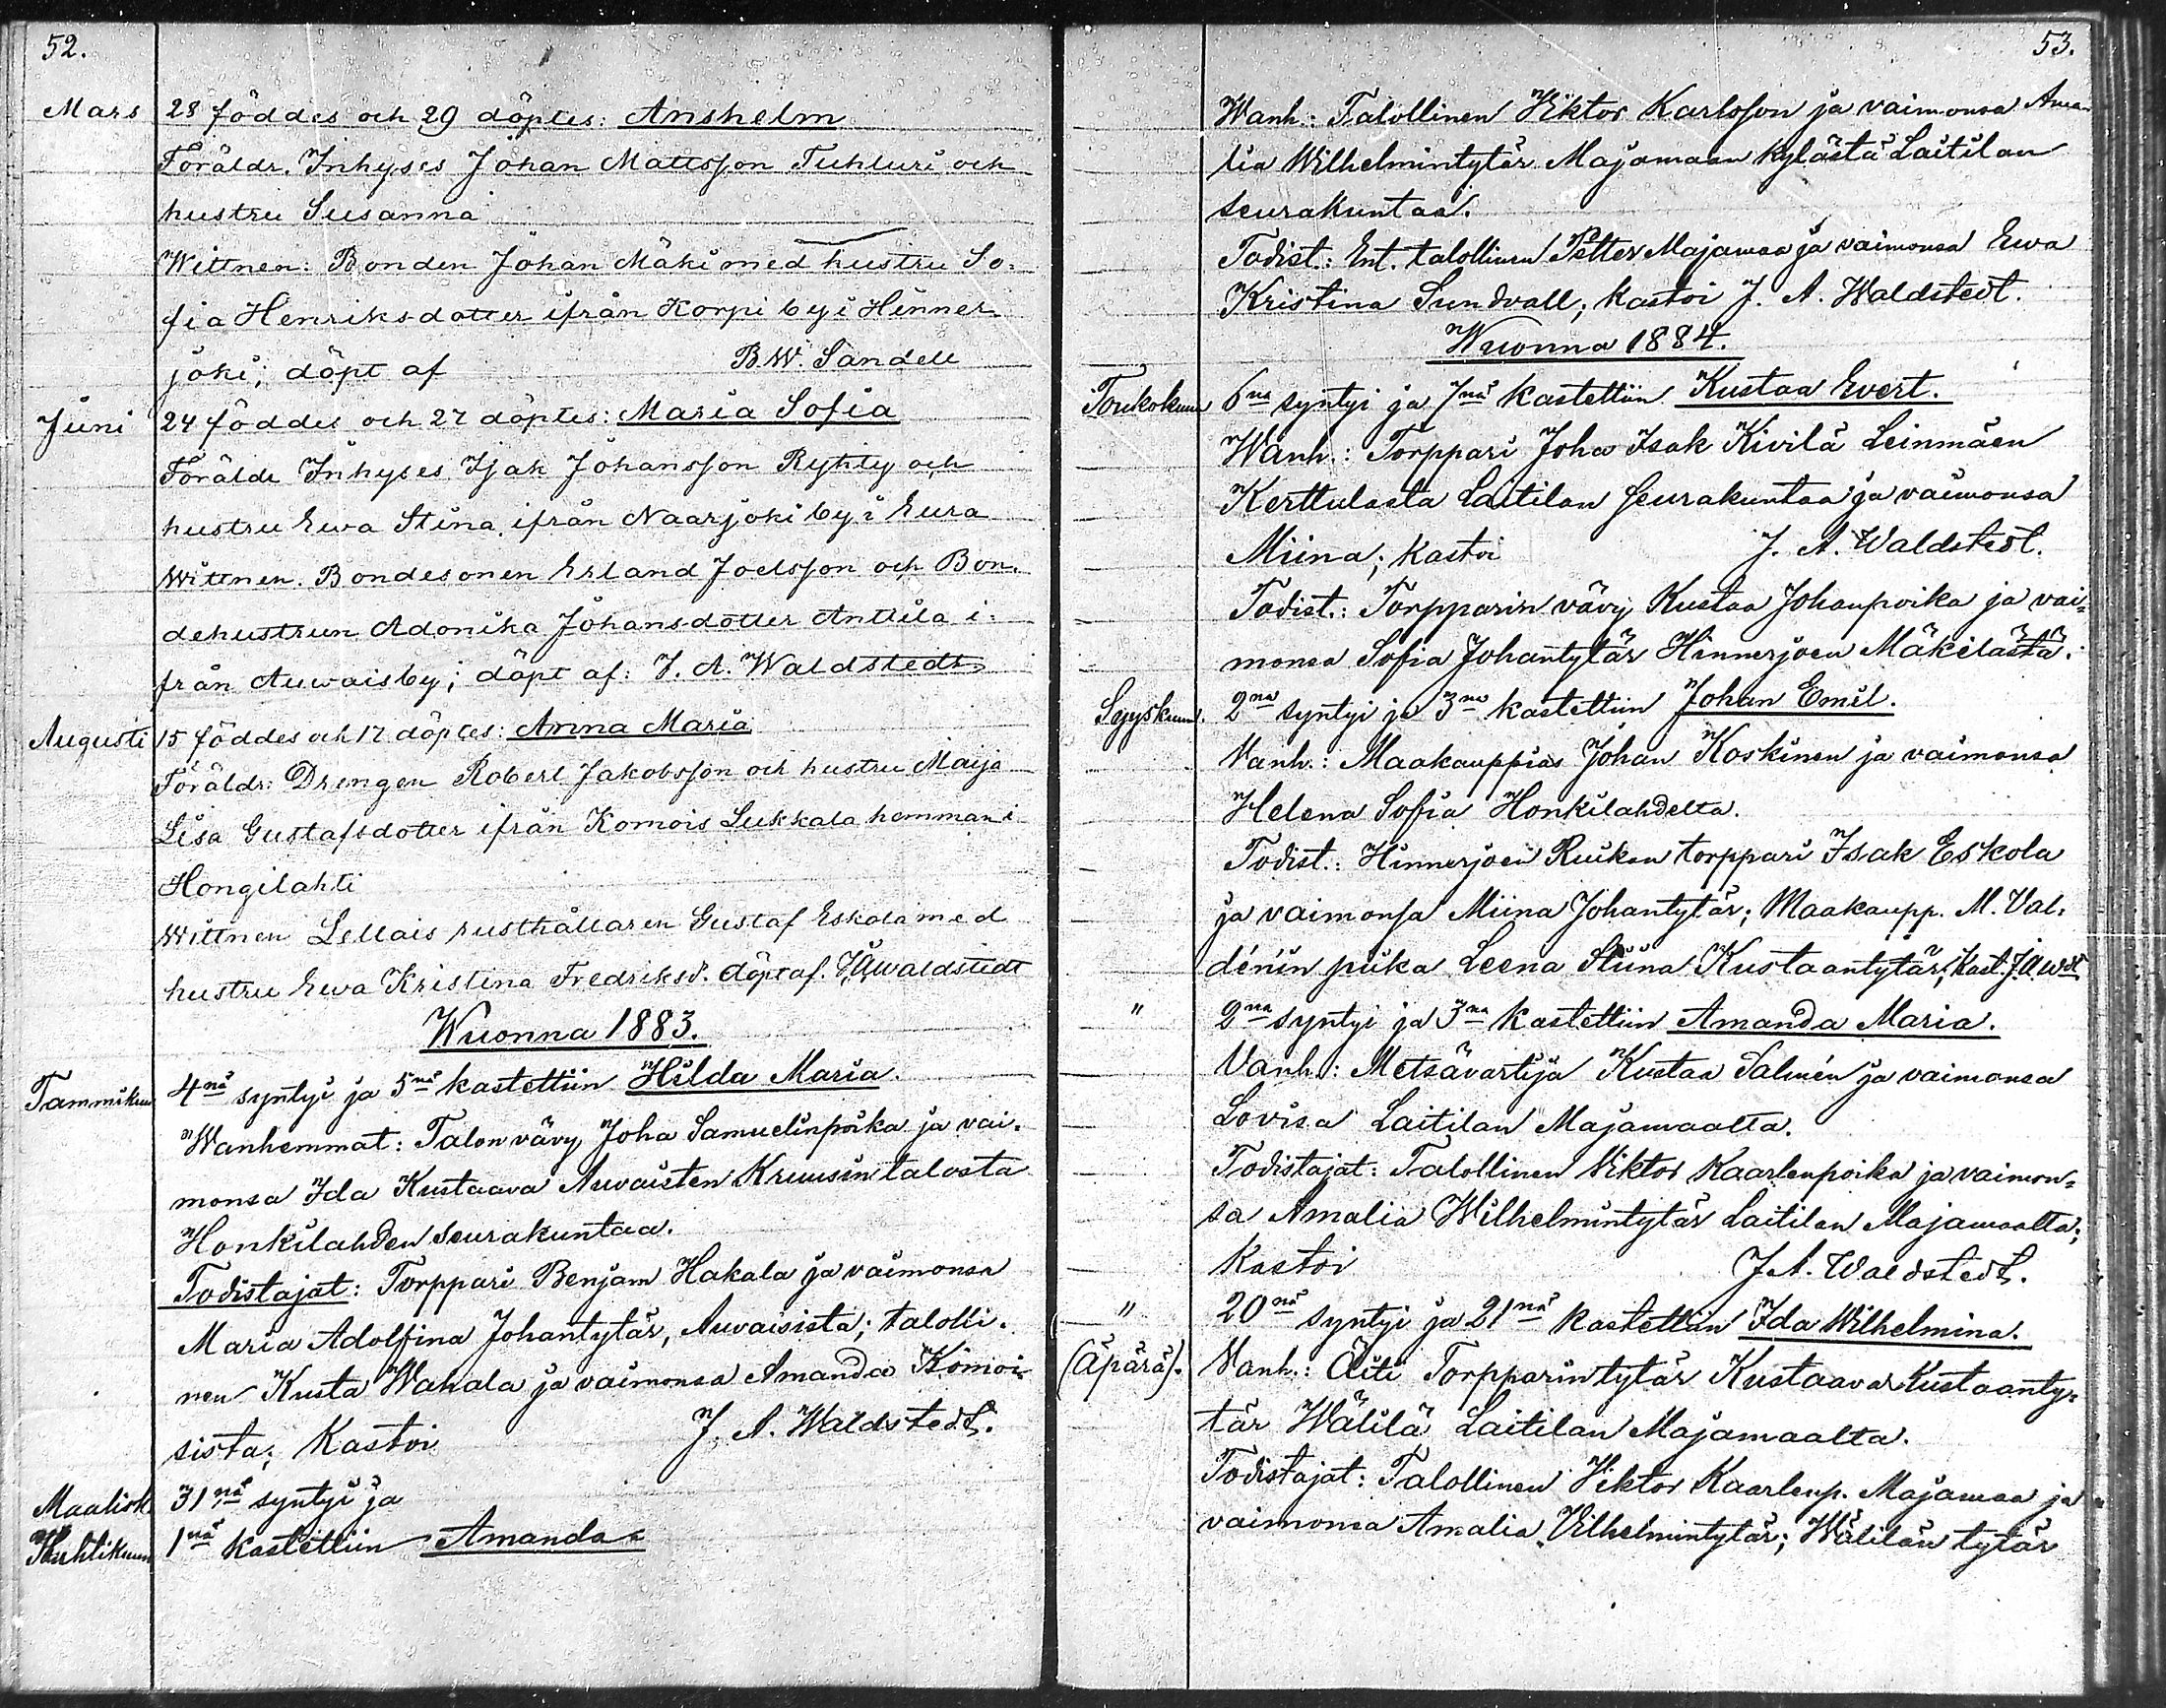 52.
Mars 28 föddes och 29 döptes: Anshelm
Föräldr. Inhyses Johan Mattsson Tuhturi och
hustru Susanna
Wittnen: Bonden Johan Mäki med hustru So-
fia Henriksdotter ifrån Korpi by i Hinner
joki; döpt af B.W. Sandell
Juni 24 föddes och 27 döptes: Maria Sofia
Förälde Inhyses Isak Johansson Ryhty och
hustru Ewa Stina ifrån Naarjoki by i Eura
Wittnen. Bondesonen Erland Joelsson och Bon-
dehustrun Adonika Johansdotter Anttila i-
från Auwais by; döpt af: J. A. Waldstedt
Augusti 15 föddes och 17 döptes: Anna Maria
Föräldr: Drengen Robert Jakobsson och hustru Maija
Lisa Gustafsdotter ifrån Komois Lukkala hemman i
Hongilahti
Wittnen Lellais rusthållaren Gustaf Eskola med
hustru Ewa Kristina Fredriksd. döpt af. J.A. Waldstedt
Wuonna 1883.
Tammikuu 4nä syntyi ja 5nä kastettiin Hilda Maria.
Wanhemmat: Talon vävy Joha Samuelinpoika ja vai-
monsa Ida Kustaava Auvaisten Kruusin talosta
Honkilahden seurakuntaa.
Todistajat: Torppari Benjam Hakala ja vaimonsa
Maria Adolfina Johantytär, Auvaisista; talolli-
nen Kusta Wahala ja vaimonsa Amanda Komoi-
sista; Kastoi J. A. Waldstedt.
Maalisk 31nä syntyi ja
Huhtikuun 1nä kastettiin Amanda
53.
Wanh.: Talollinen Viktor Karlsson ja vaimonsa Ama-
lia Wilhelmintytär Majamaan kylästä Laitilan
seurakuntaa.
Todist.: Ent. talollinen Petter Majamaa ja vaimonsa Ewa
Kristina Sundvall; kastoi J. A. Waldstedt.
Wuonna 1884.
Toukokuun 6na syntyi ja 7nä kastettiin Kustaa Evert.
Wanh.: Torppari Joha Isak Kivilä Leinmäen
Kerttulasta Laitilan seurakuntaa ja vaimonsa
Miina; kastoi J. A. Waldstedt.
Todist.: Torpparin vävy Kustaa Johanpoika ja vai-
monsa Sofia Johantytär Hinnerjoen Mäkilästä.
Syyskuun. 2na syntyi ja 3na kastettiin Johan Emil.
Vanh.: Maakauppias Johan Koskinen ja vaimonsa
Helena Sofia Honkilahdelta.
Todist.: Hinnerjoen Ruikan torppari Isak Eskola
ja vaimonsa Miina Johantytär; Maakaupp. M. Val-
dénin piika Leena Stiina Kustaantytär; Kast. J.A.Wdt
" 2na syntyi ja 3na kastettiin Amanda Maria.
Vanh.: Metsävartija Kustaa Salmén ja vaimonsa
Lovisa Laitilan Majamaalta.
Todistajat: Talollinen Viktor Kaarlenpoika ja vaimon-
sa Amalia Wilhelmintytär Laitilan Majamaalta;
Kastoi J. A. Waldstedt.
" 20nä syntyi ja 21nä kastettiin Ida Wilhelmina.
(Äpärä). Vanh.: Äiti Torpparintytär Kustaava Kustaanty-
tär Wälilä Laitilan Majamaalta.
Todistajat: Talollinen Viktor Kaarlenp. Majamaa ja
vaimonsa Amalia Vilhelmintytär; Wälilän tytär